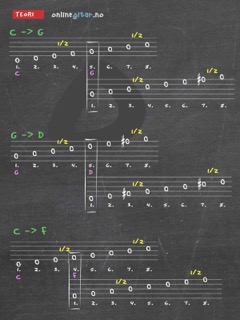 TEORI onlinegitar.no
C -> G
1/2 1/2
1. 2. 3. 4. 5. 6. 7. 8.
C G
1/2 1/2
1. 2. 3. 4. 5. 6. 7. 8.
G -> D
1/2 1/2
#
1. 2. 3. 4. 5. 6. 7. 8.
G D
1/2 1/2
# #
1. 2. 3. 4. 5. 6. 7. 8.
C -> F
1/2 1/2
1. 2. 3. 4. 5. 6. 7. 8.
C F
1/2 1/2
1. 2. 3. 4. 5. 6. 7. 8.